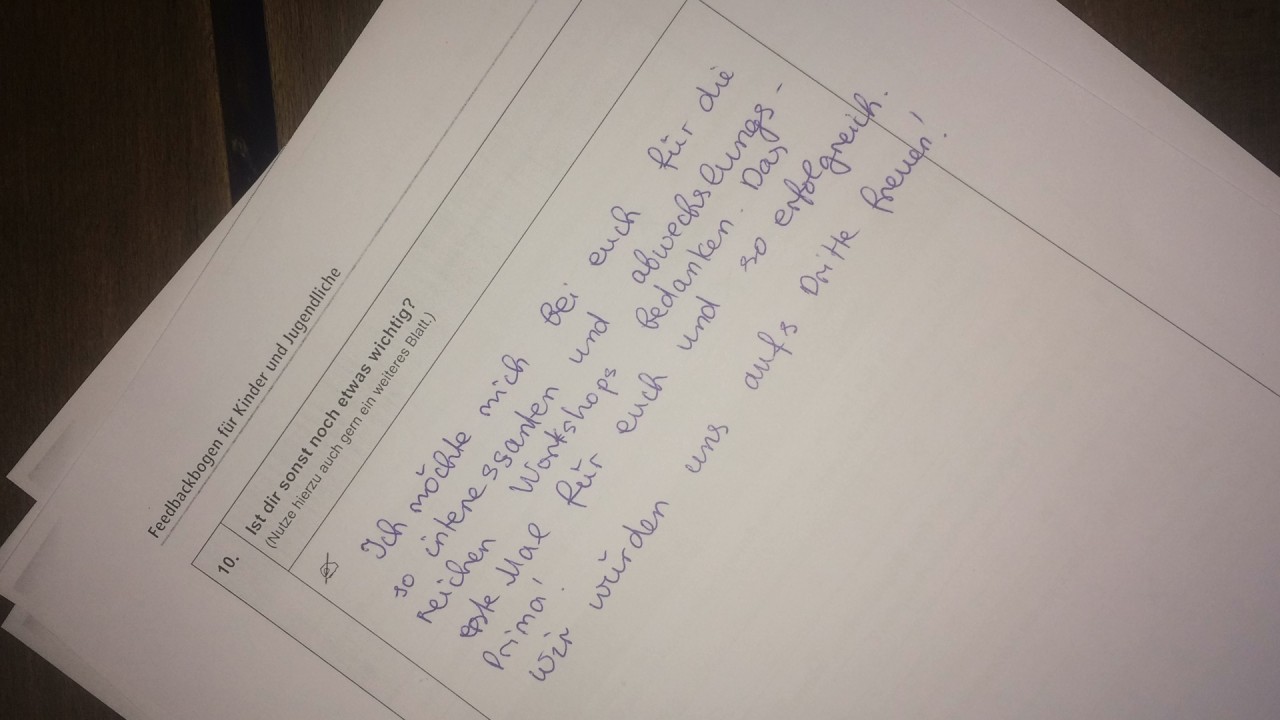 Feedbackbogen für Kinder und Jugendliche
10. Ist dir sonst noch etwas wichtig?
(Nutze hierzu auch gern ein weiteres Blatt.)
Ich möchte mich Bei euch für die
so interessanten und abwechslungs-
reichen Workshops Bedanken. Das
erste Mal für euch und so erfolgreich.
Prima!
Wir würden uns aufs Dritte freuen!